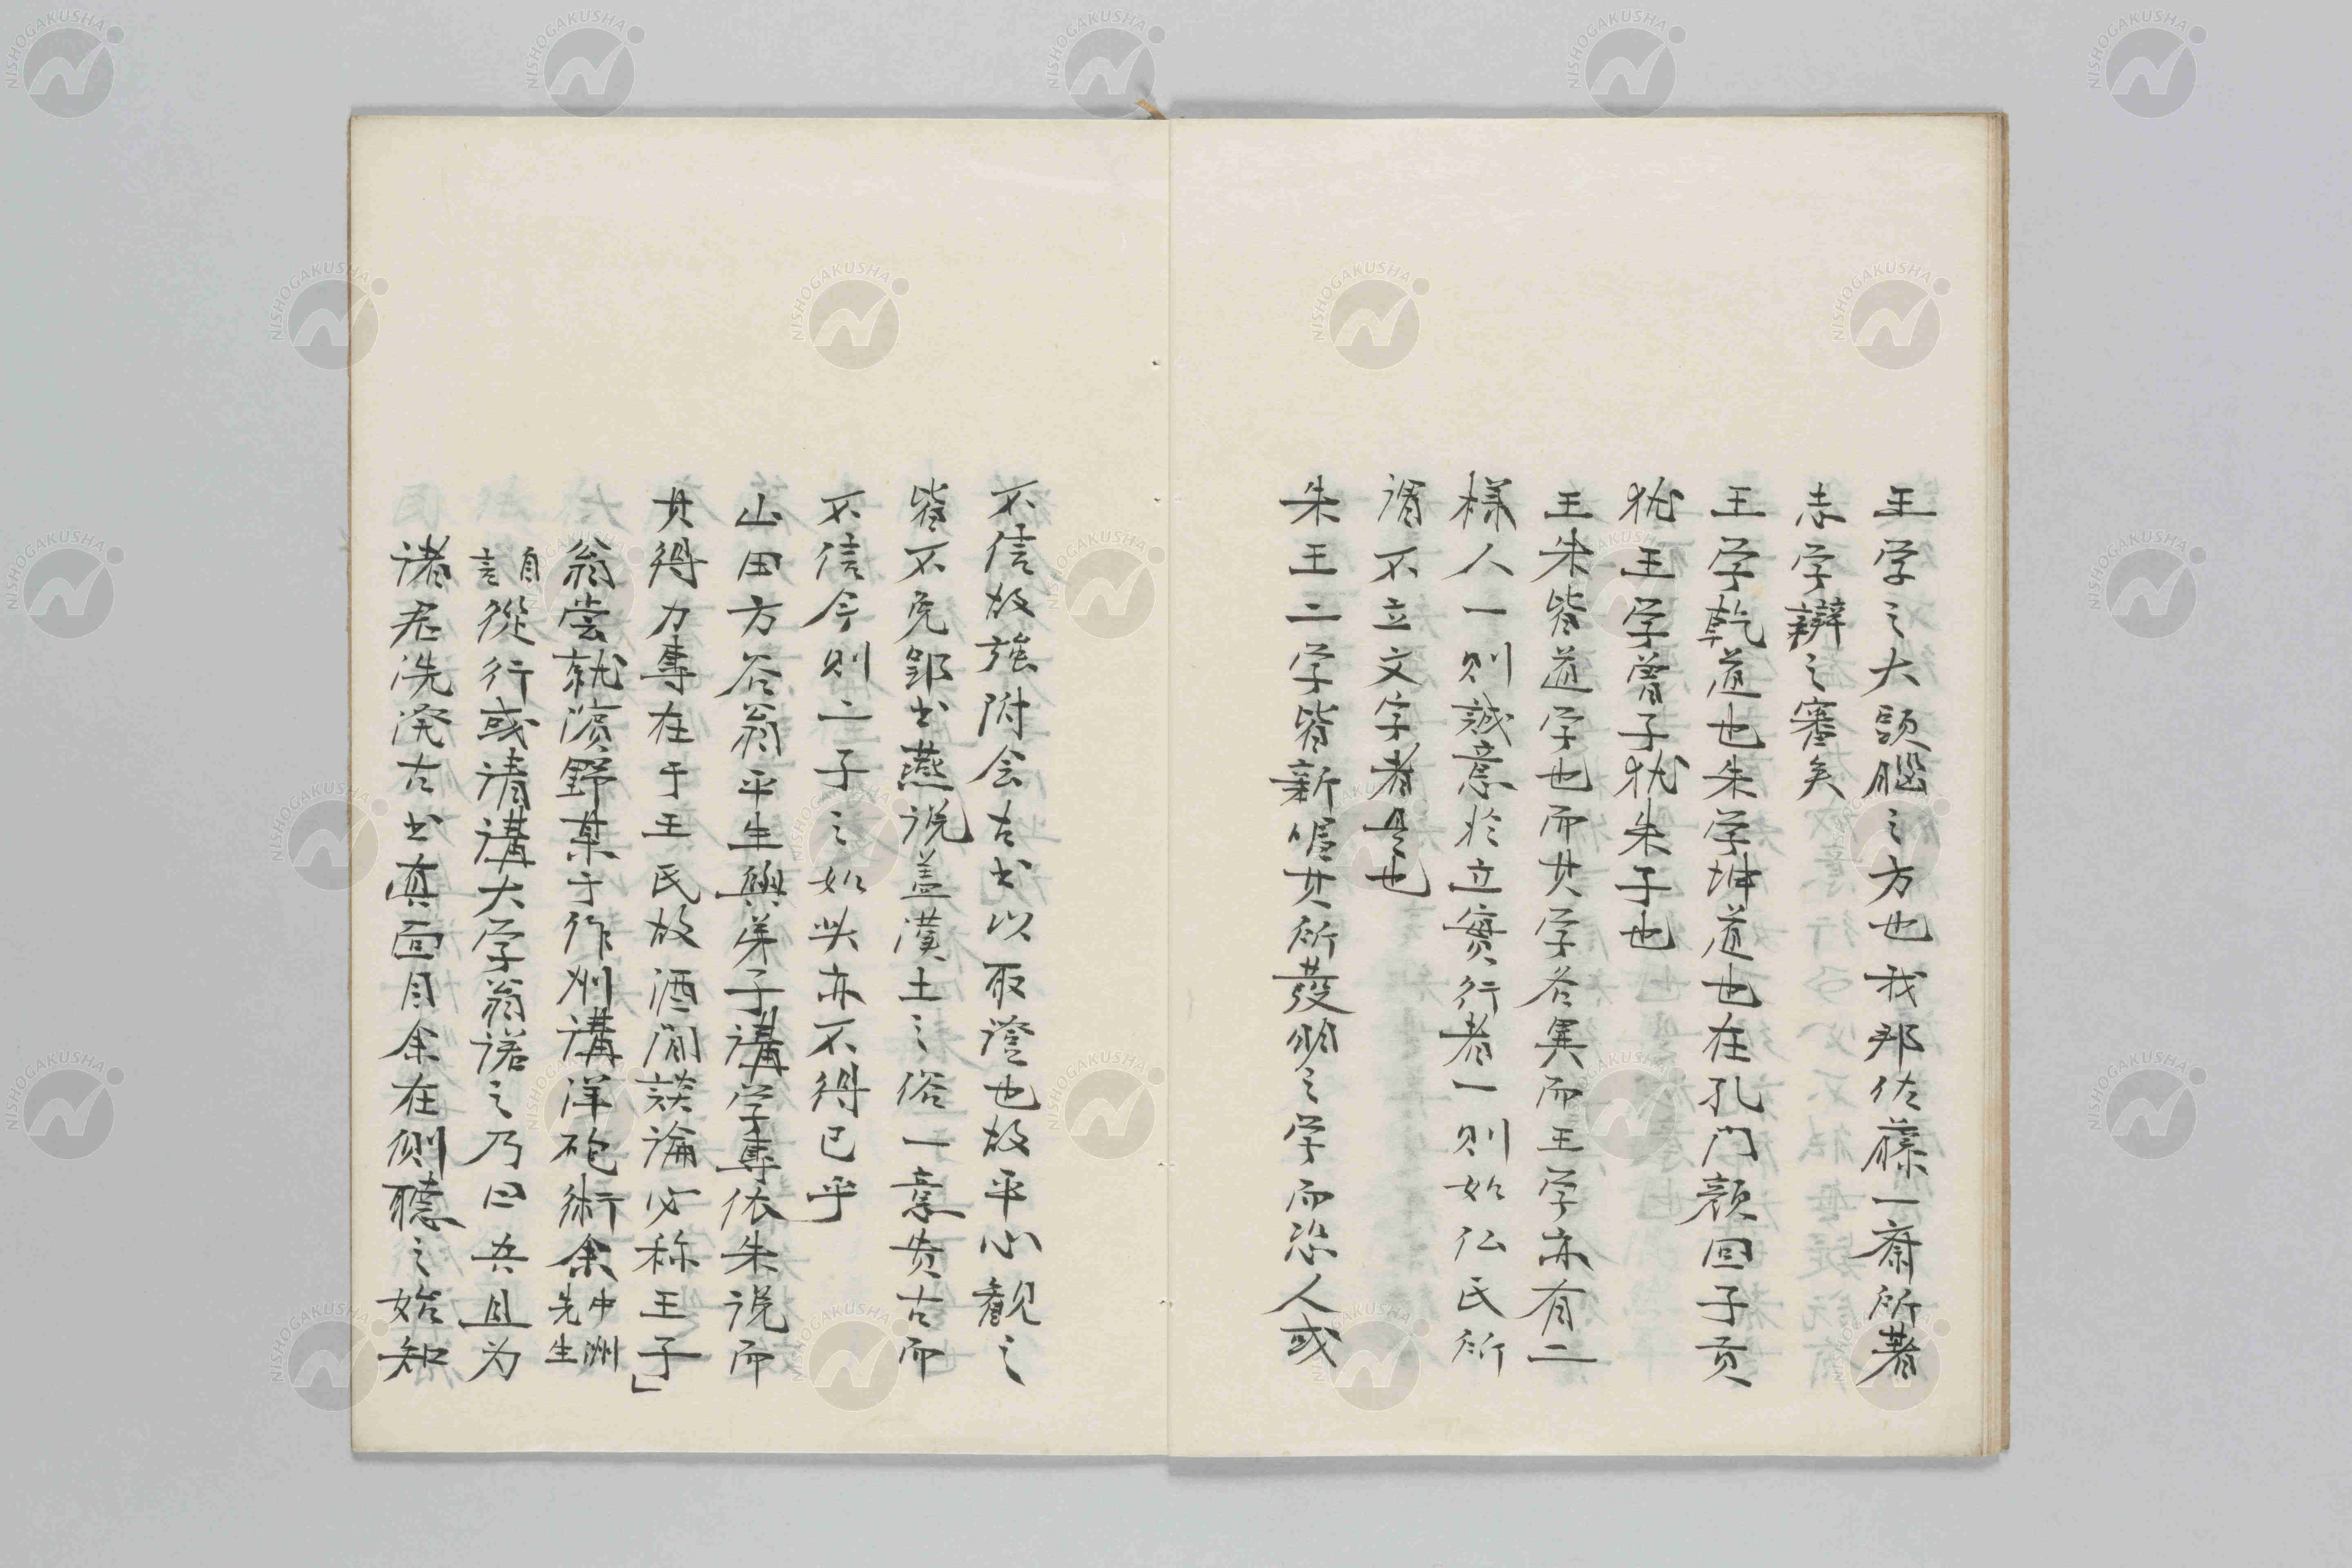 王学之大頭脳之方也我邦佐藤一斎所著
志字辯之審矣
王学乾道也朱学坤道也在孔门顔回子貢
犹王学曽子犹朱子也
王朱皆道学也而其学各異而王学亦有二
様人一則誠意於立實行者一則如仏氏所
謂不立文字者是也
朱王二学皆新唱其所發明之学而恐人或
不信故強附会古书以取證也故平心観之
皆不免郢书燕说盖漢土之俗一意贵古而
不信今則二子之如此亦不得已乎
山田方谷翁平生與弟子講学專依朱说而
其得力專在于王氏故酒间談論必称王子」
翁尝就濱野某于作州講洋砲術余中洲先生
自言從行或请講大学翁诺之乃曰吾且为
诸君洗発古书真面目余在側聴之始知